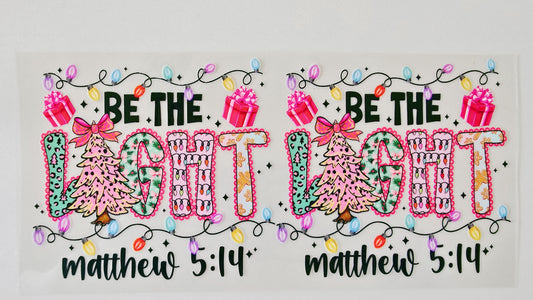 BE THE
LIGHT
matthew 5:14
BE THE
LIGHT
matthew 5:14